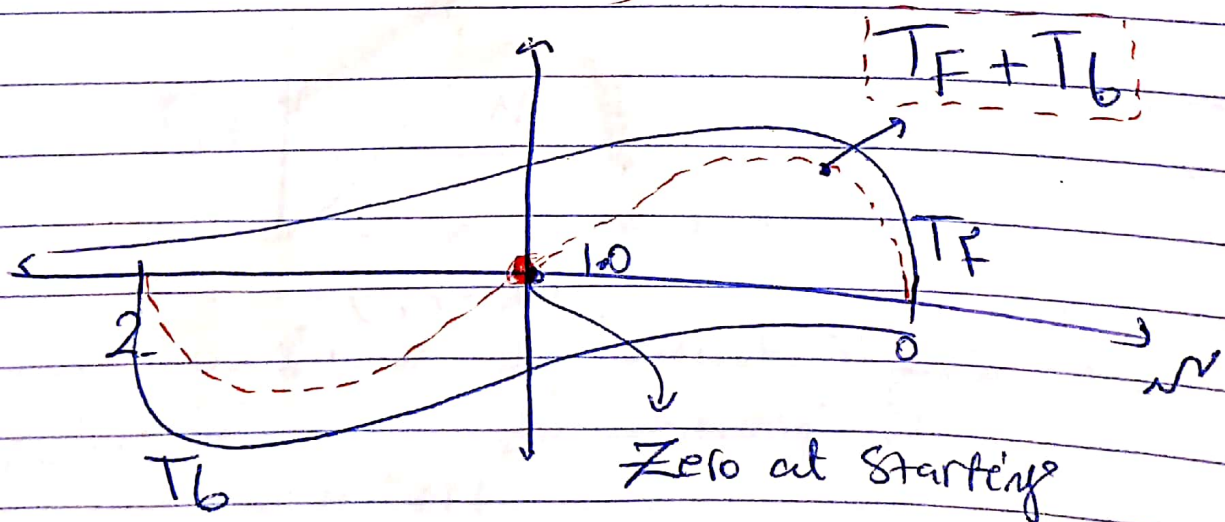 T_F + T_b
T_F
1.0
2
0
N
Zero at starting
T_b